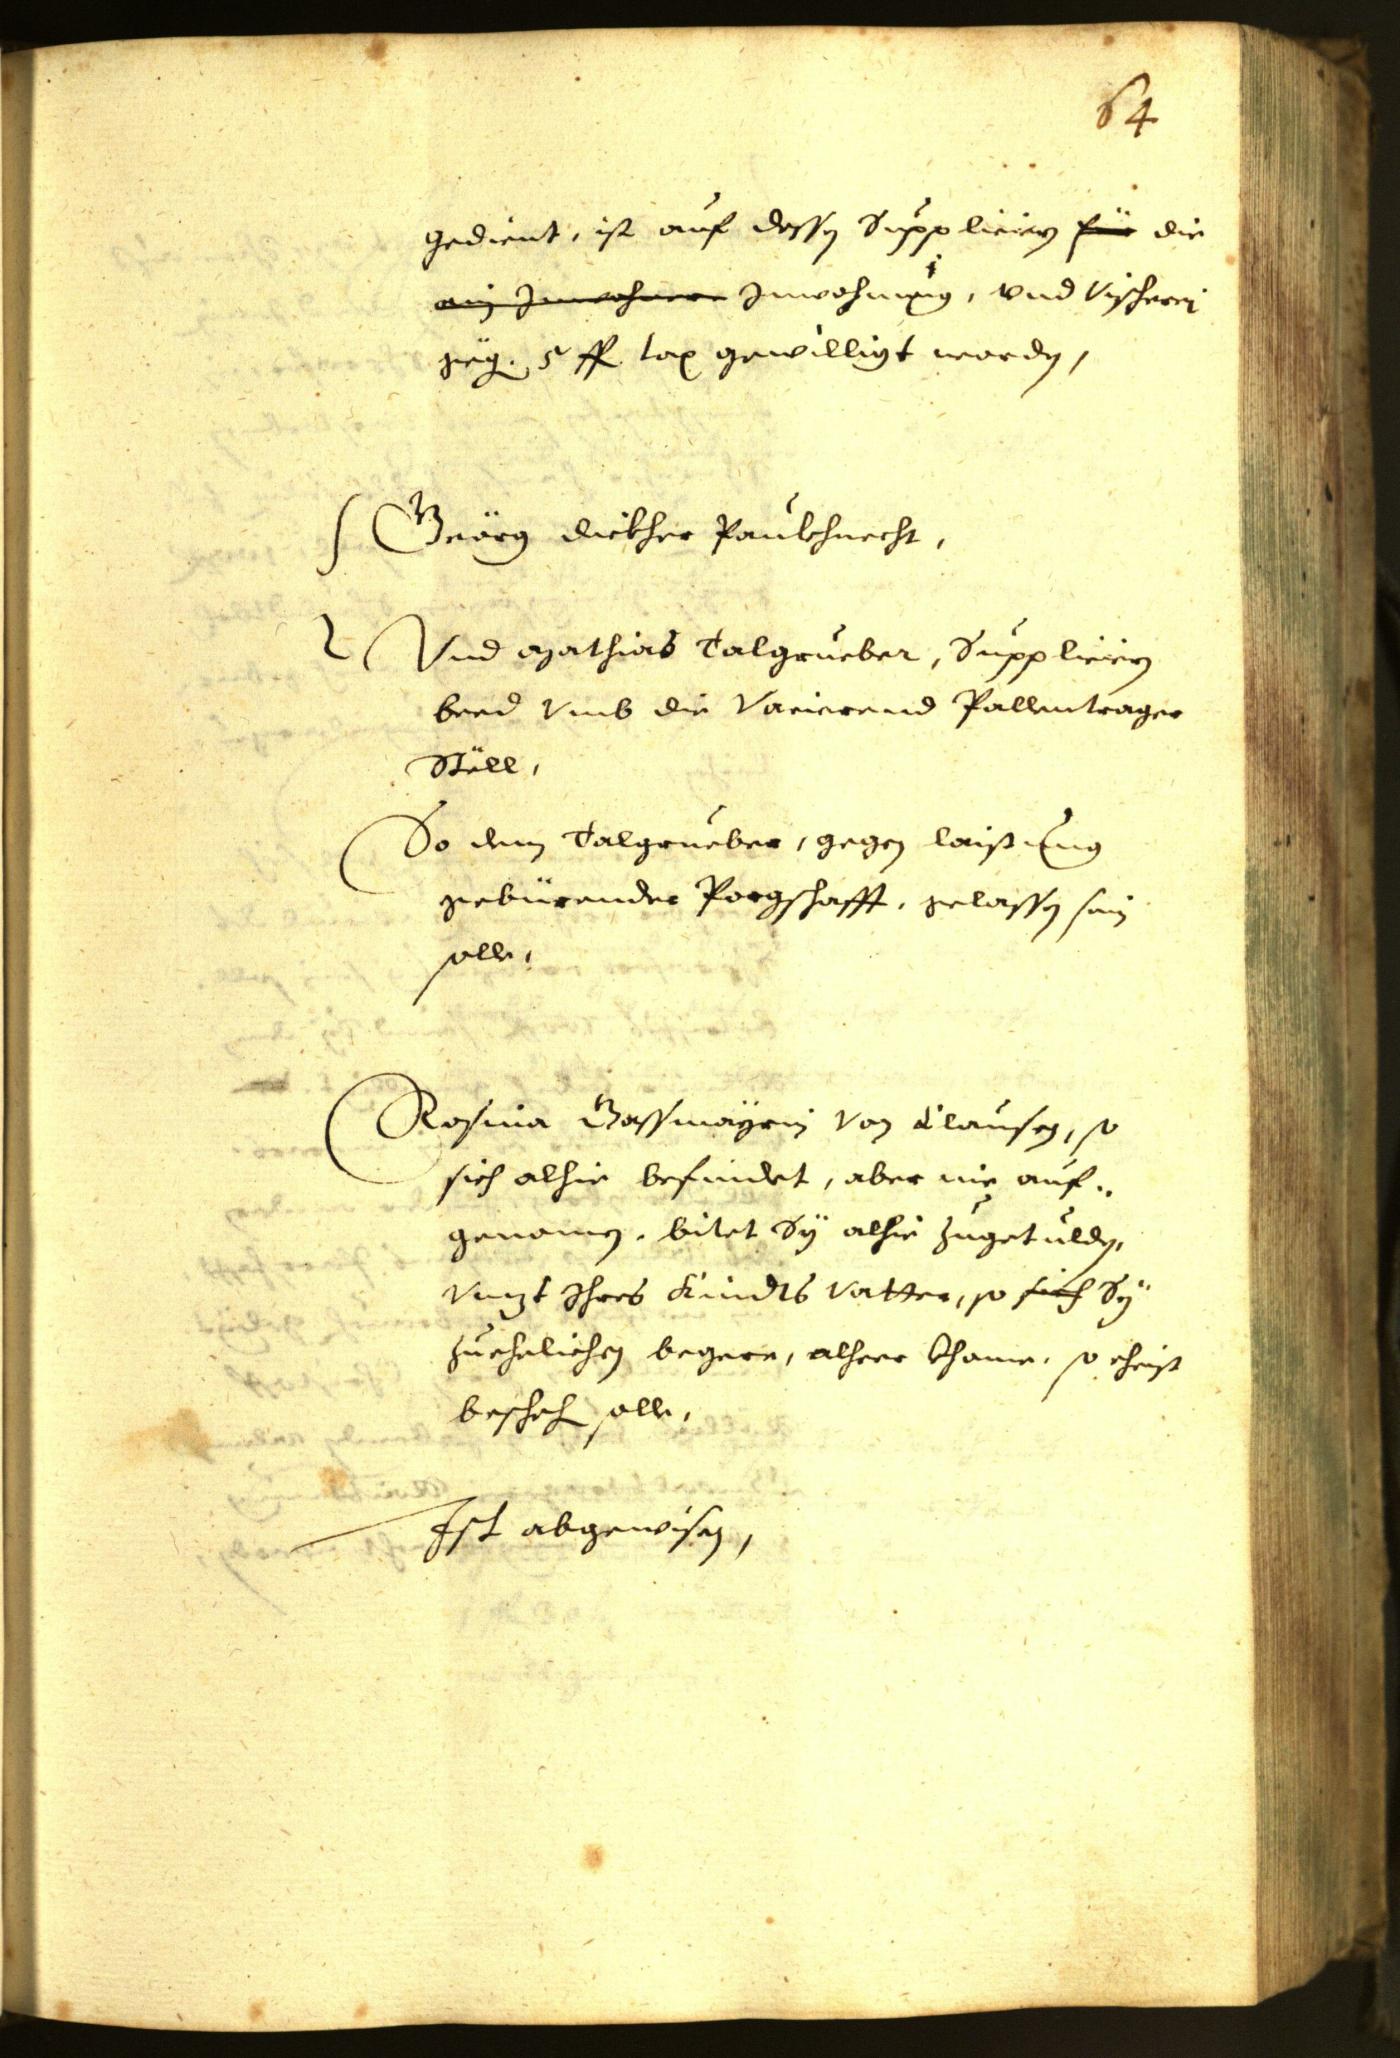 64
gedient, ist auf dessen Supplicirn für die
ain Inwohner Inwohnung, vnd Vischerej
geg. 5 fl. tax gewilligt worden,
Geörg dickher Paukhnecht,
Vnd Mathias Talgrueber, Supplicirn
beed vmb die Vacierend Pallentrager
Stöll,
So dem Talgrueber, gegen laistung
gebürender Porgschafft, gelassen sein
solle,
Rosina Gassmayrin von Clausen, so
sich alhie befindet, aber nie auf-
genomen, bitet Sÿ alhie zugetulden,
vnzt Ihres Kindts Vatter, so sich Sÿ
zuehelichen begere, alheer khame, so ehist
bescheh solle,
Ist abgewisen,